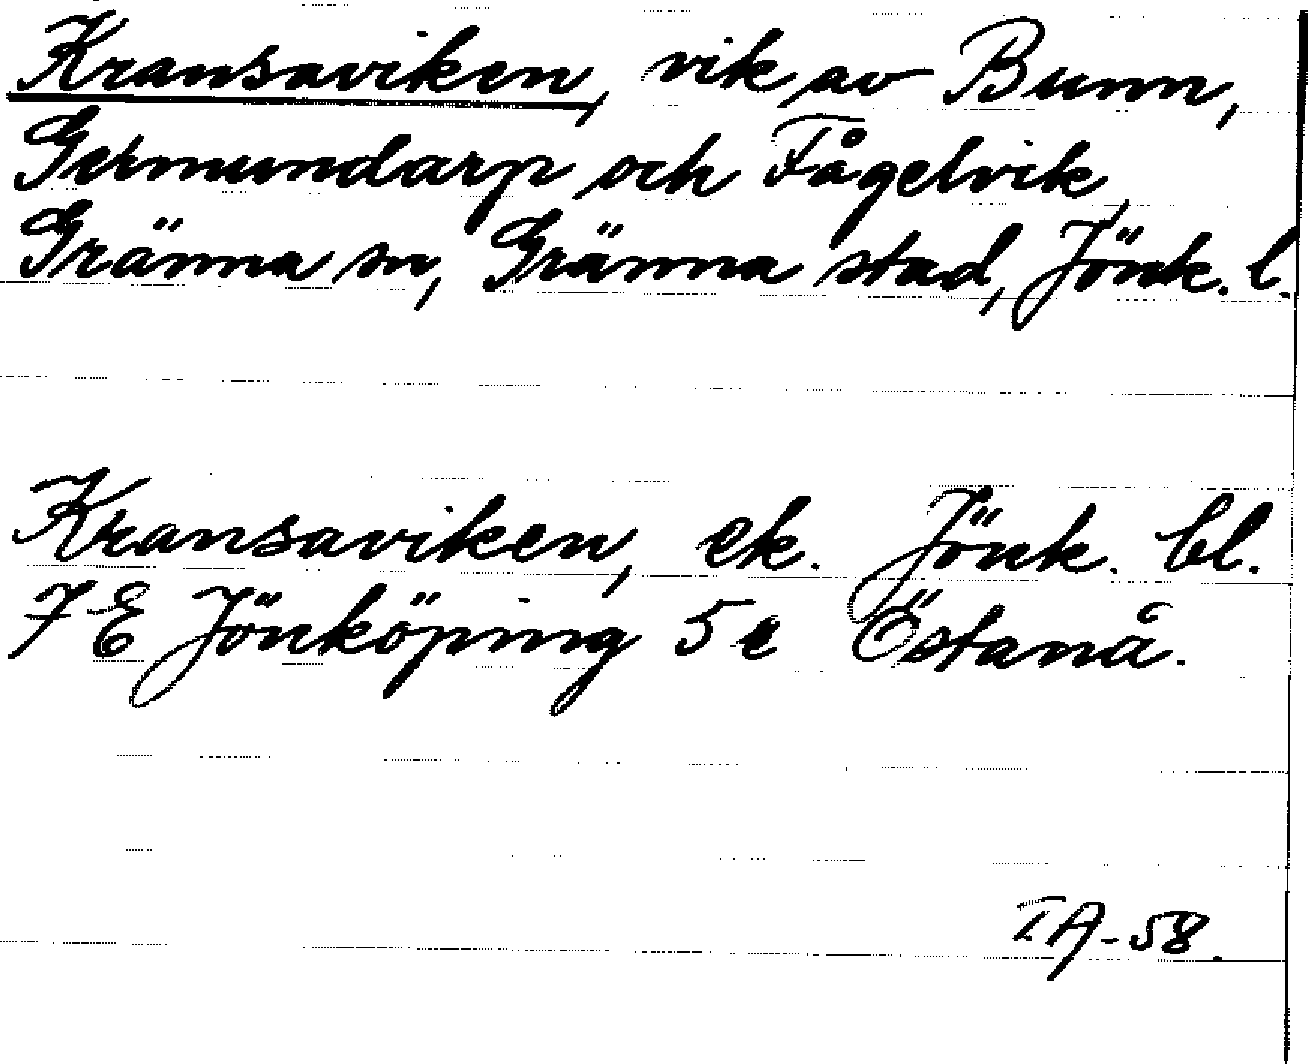 Kransaviken, vik av Bunn,
Germundarp och Fågelvik,
Gränna sn, Gränna stad, Jönk. l.
Kransaviken, ek. Jönk. bl.
7 E Jönköping 5 e Östanå.
IA-58.